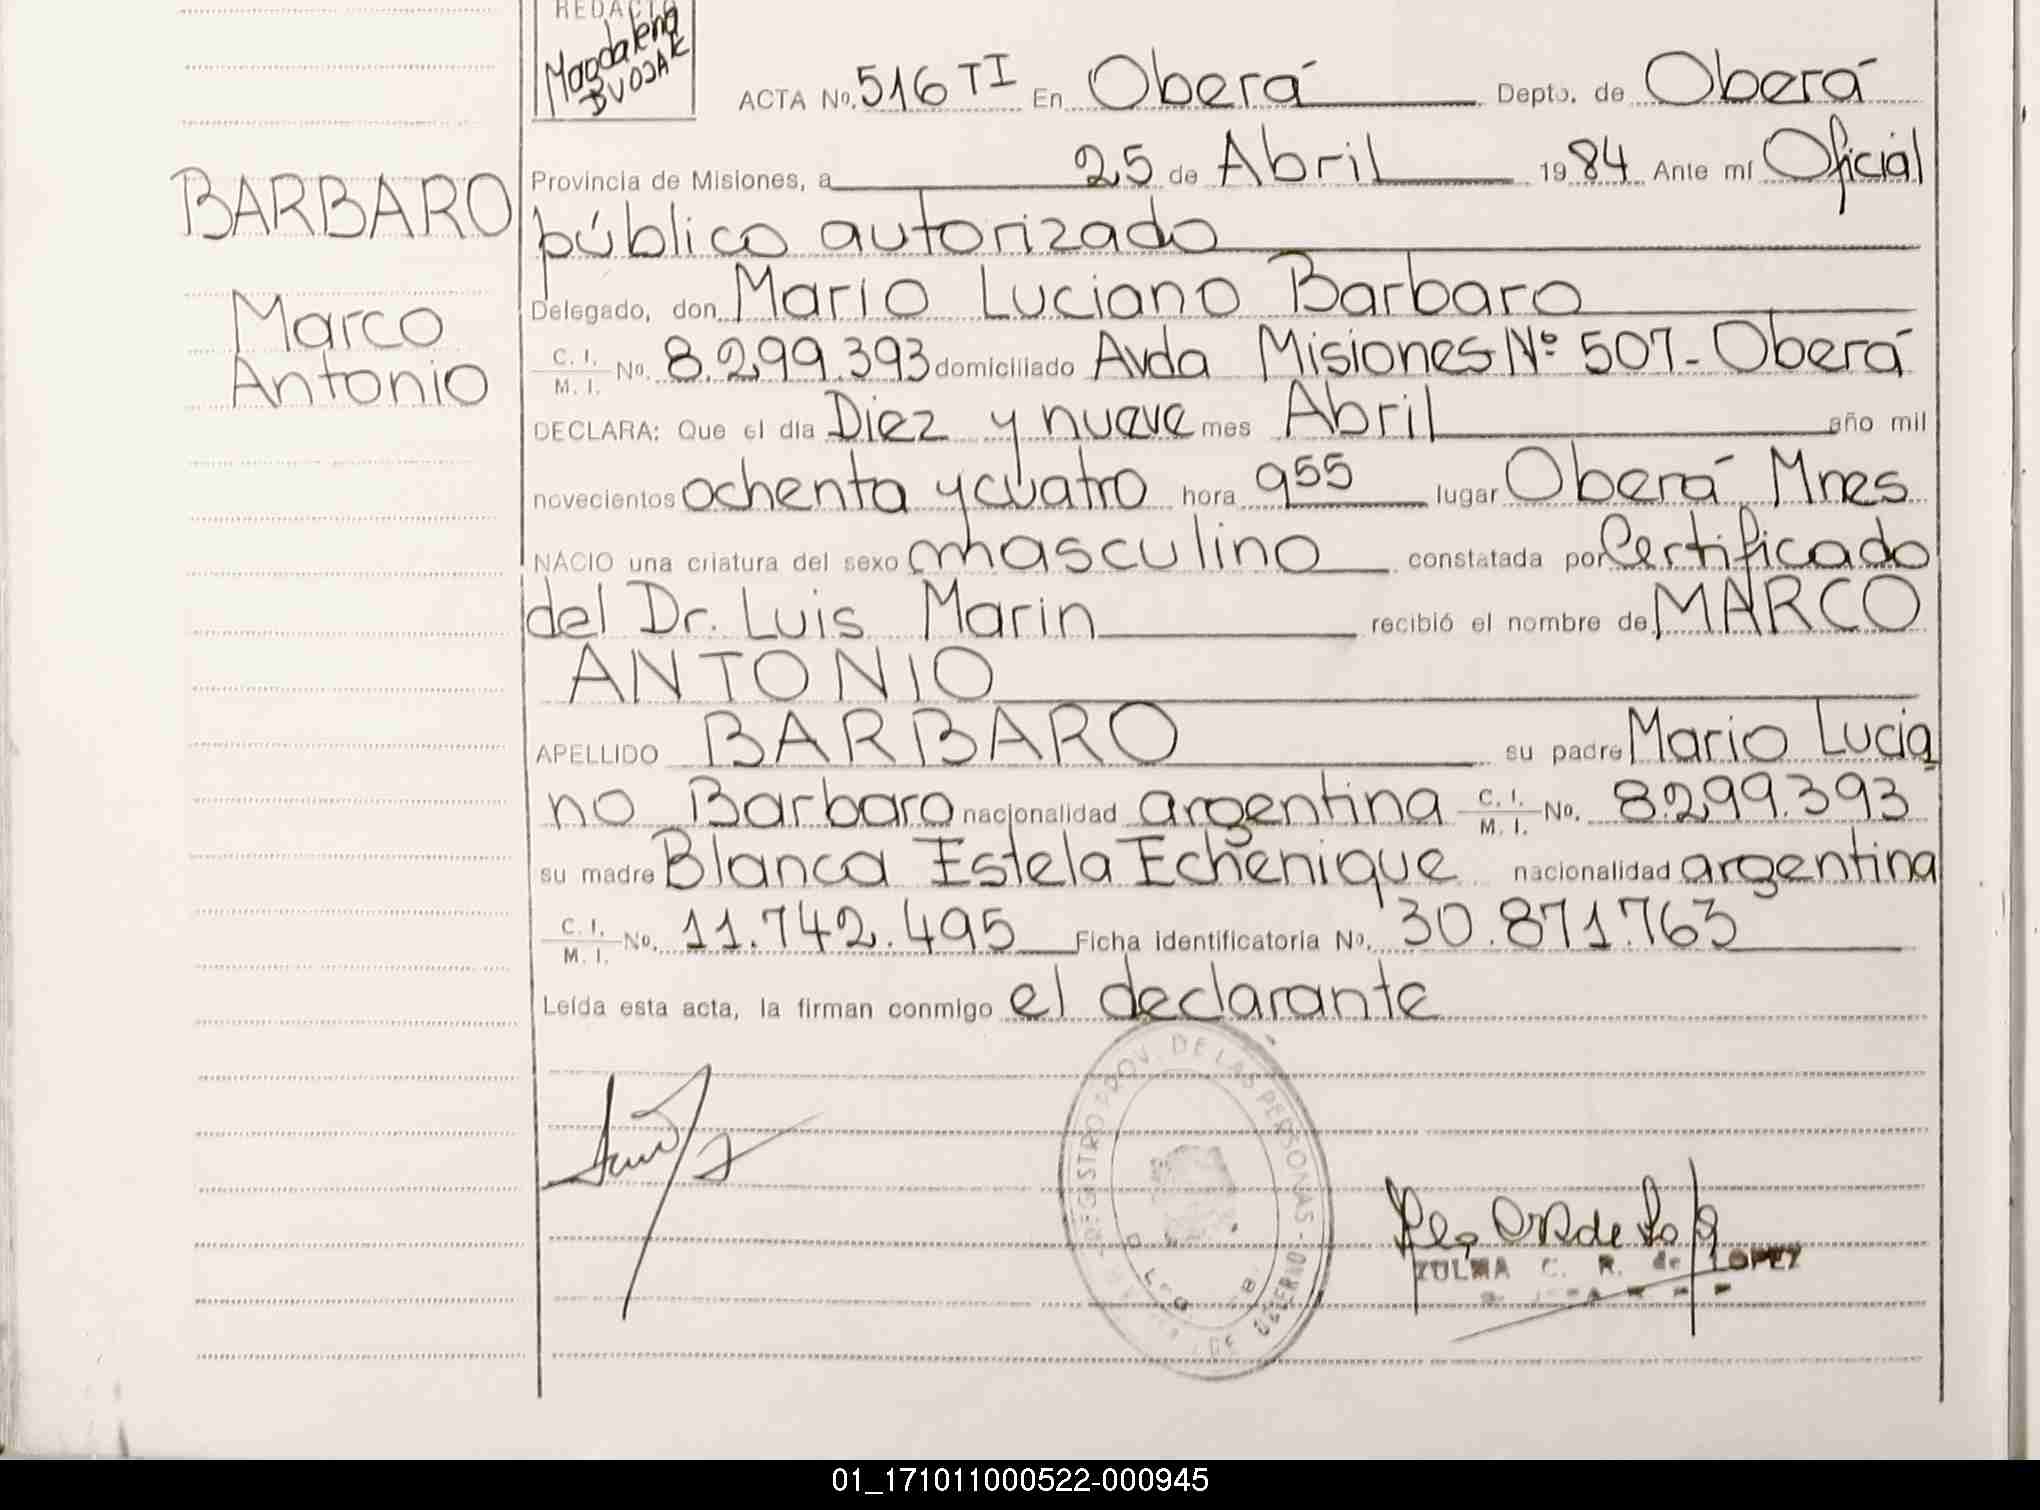 REDACTO
Magdalena
BVOJAK
ACTA No. 516 TI En Oberá Depto. de Oberá
Provincia de Misiones, a 25 de Abril 1984 Ante mí Oficial
público autorizado
Delegado, don Mario Luciano Barbaro
C. I. / M. I. No. 8.299.393 domiciliado Avda Misiones Nº 507 - Oberá
DECLARA: Que el día Diez y nueve mes Abril año mil
novecientos ochenta y cuatro hora 955 lugar Oberá Mnes
NACIO una criatura del sexo masculino constatada por Certificado
del Dr. Luis Marin recibió el nombre de MARCO
ANTONIO
APELLIDO BARBARO su padre Mario Lucia
no Barbaro nacionalidad argentina C. I. / M. I. No. 8.299.393
su madre Blanca Estela Echenique nacionalidad argentina
C. I. / M. I. No. 11.742.495 Ficha identificatoria No. 30.871.763
Leída esta acta, la firman conmigo el declarante
BARBARO
Marco
Antonio
REGISTRO PROV. DE LAS PERSONAS
DE GOBIERNO
ZULMA C. R. de LOPEZ
01_171011000522-000945